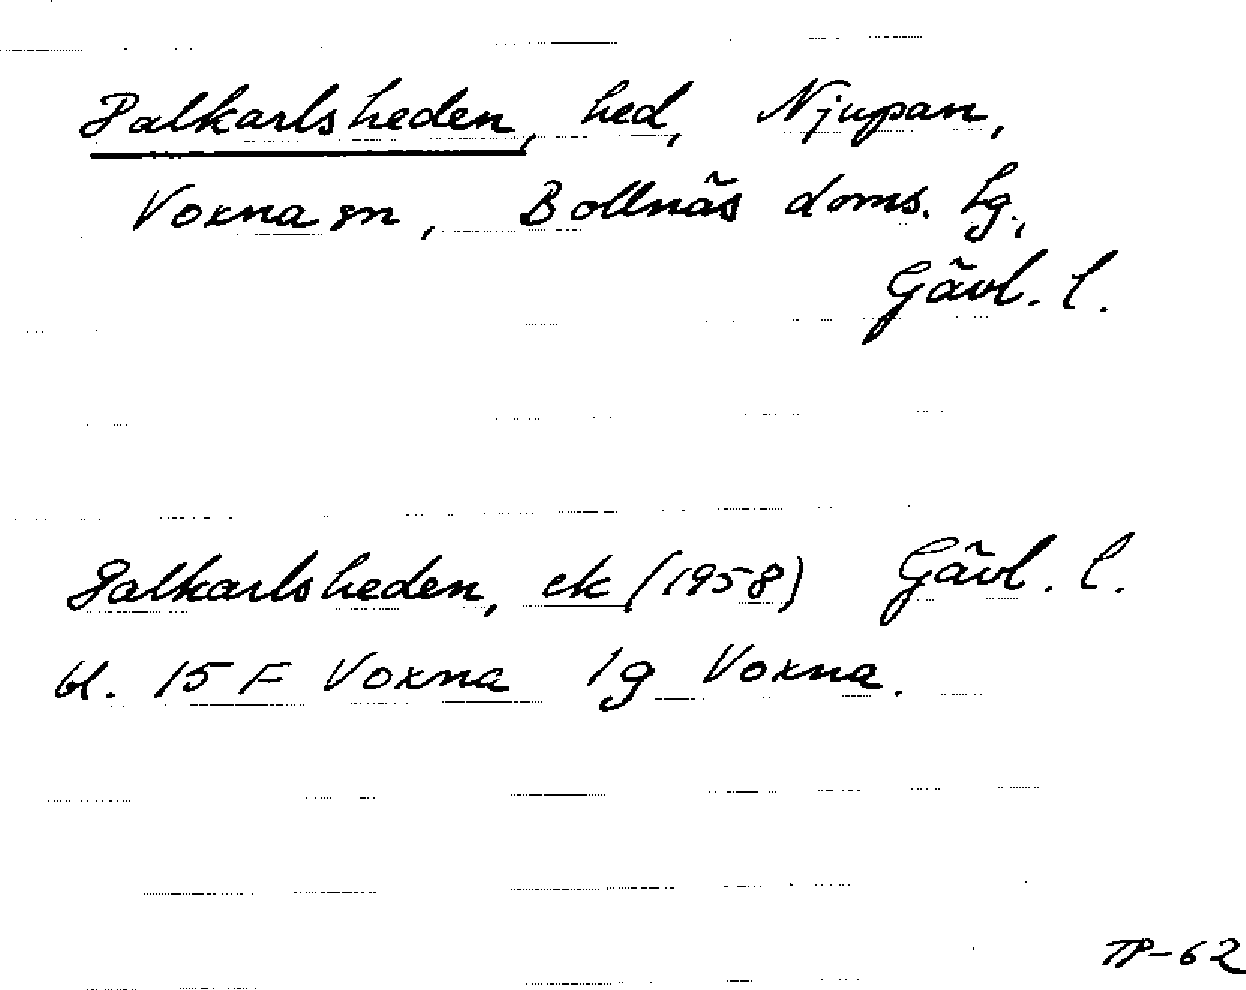 Palkarlsheden, hed, Njupan,
Voxna sn, Bollnäs doms. lg.,
Gävl. l.
Palkarlsheden, ek (1958) Gävl. l.
bl. 15 F Voxna 1g Voxna.
TP-62